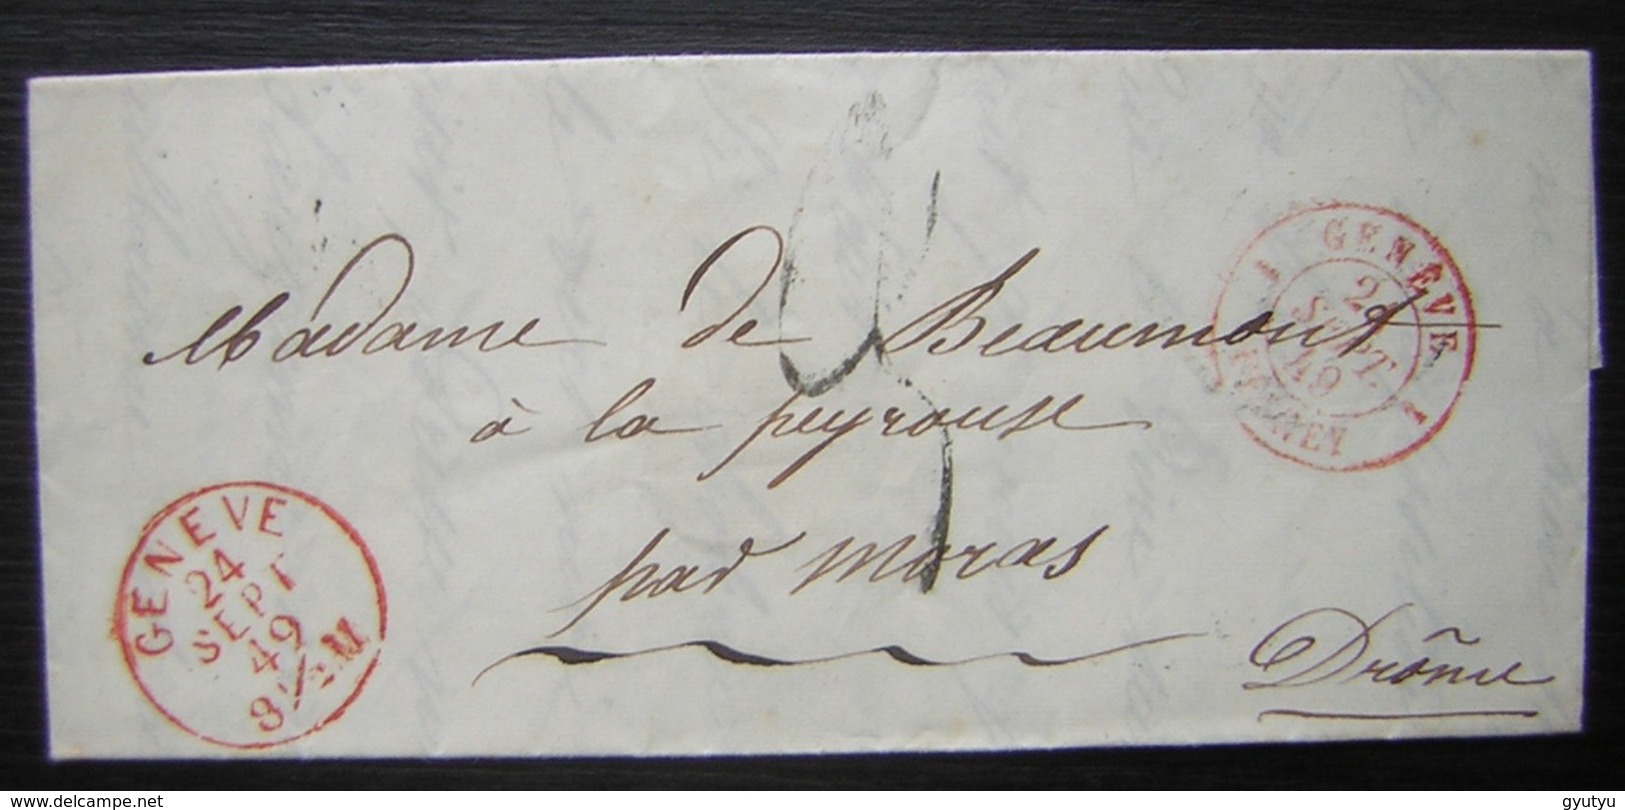 Madame de Beaumont
à la peyrouse
par moras
Drôme
GENEVE
24
SEPT
49
8½M
1 GENÈVE 1
SEPT.
49
FERNEY
delcampe.net
gyutyu